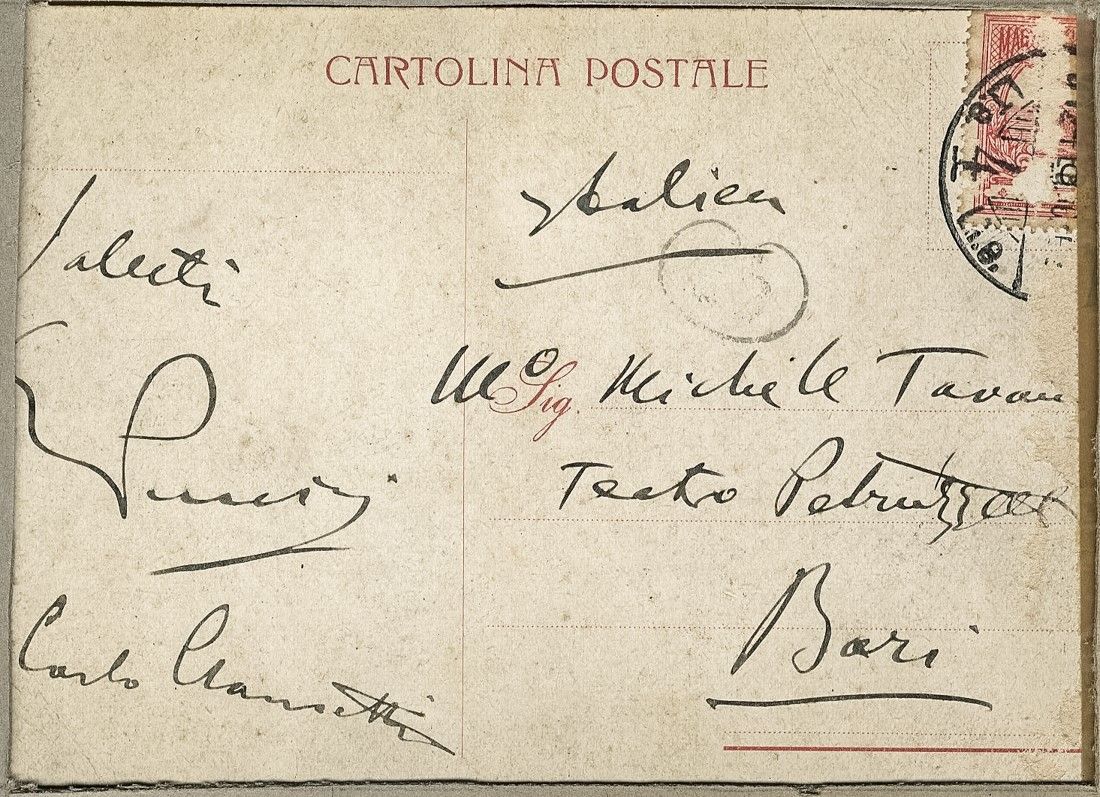 CARTOLINA POSTALE
MAG
Italien
Saluti
Mo Sig. Michele Tavan
Puccini
Teatro Petruzzelli
Bari
Carlo Clausetti